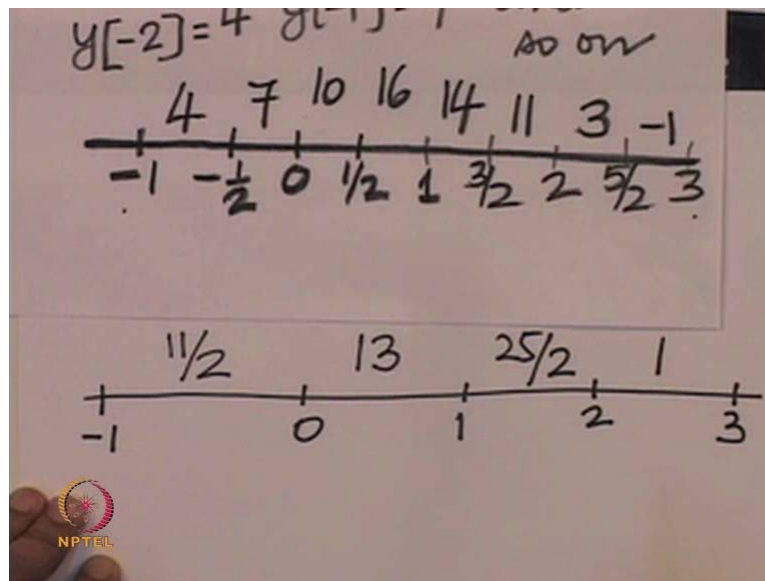 y[-2]=4
so on
4 7 10 16 14 11 3 -1
-1 -1/2 0 1/2 1 3/2 2 5/2 3
11/2 13 25/2 1
-1 0 1 2 3
NPTEL